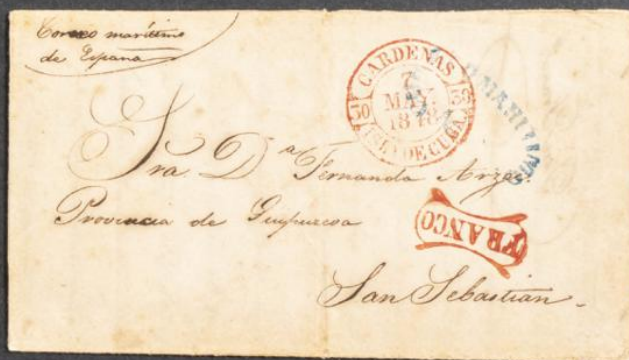 Correo marítimo
de España
CARDENAS
7
MAY.
1848
30 30
ISLA DE CUBA.
Sra. Dª Fernanda Arzac.
Provincia de Guipuzcoa
FRANCO
San Sebastian.